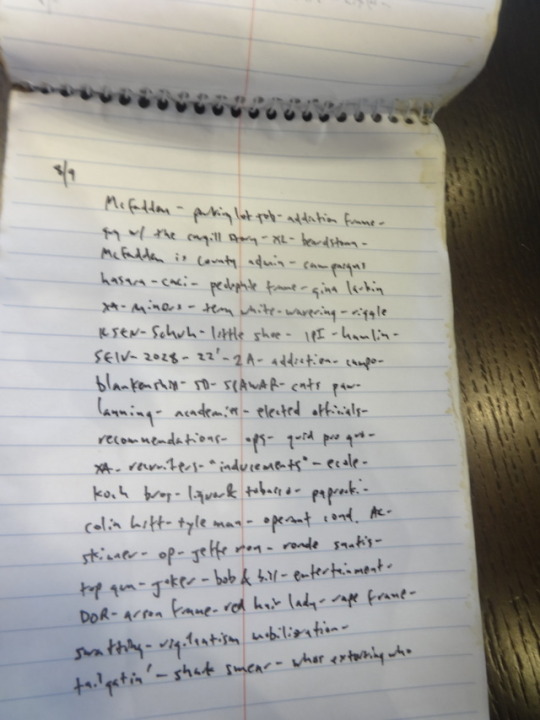 8/9
McFadden - parking lot job - addiction frame -
guy w/ the cargill story - XL - beardstown -
McFadden is county admin - campaigns
hasara - caci - pedophile frame - gina larkin
XA - minors - term white - wavering - riggle
KSEN - Schuh - little shoe - IPI - hamlin -
SEIU - 2028 - 22' - 2A - addiction - campo -
blankenship - SD - SPAWAR - cnts paw -
lanning - academies - elected officials -
recommendations - ops - quid pro quo -
XA - recruiters - "inducements" - ecole -
Koch bros - liquor & tobacco - paprocki -
colin hitt - tyleman - operant cond. AC -
skinner - op - jefferson - ronde santis -
top gun - joker - bob & bill - entertainment -
DOR - arson frame - red hair lady - rape frame -
swatting - vigilantism mobilization -
tailgatin' - shark smear - whos extorting who